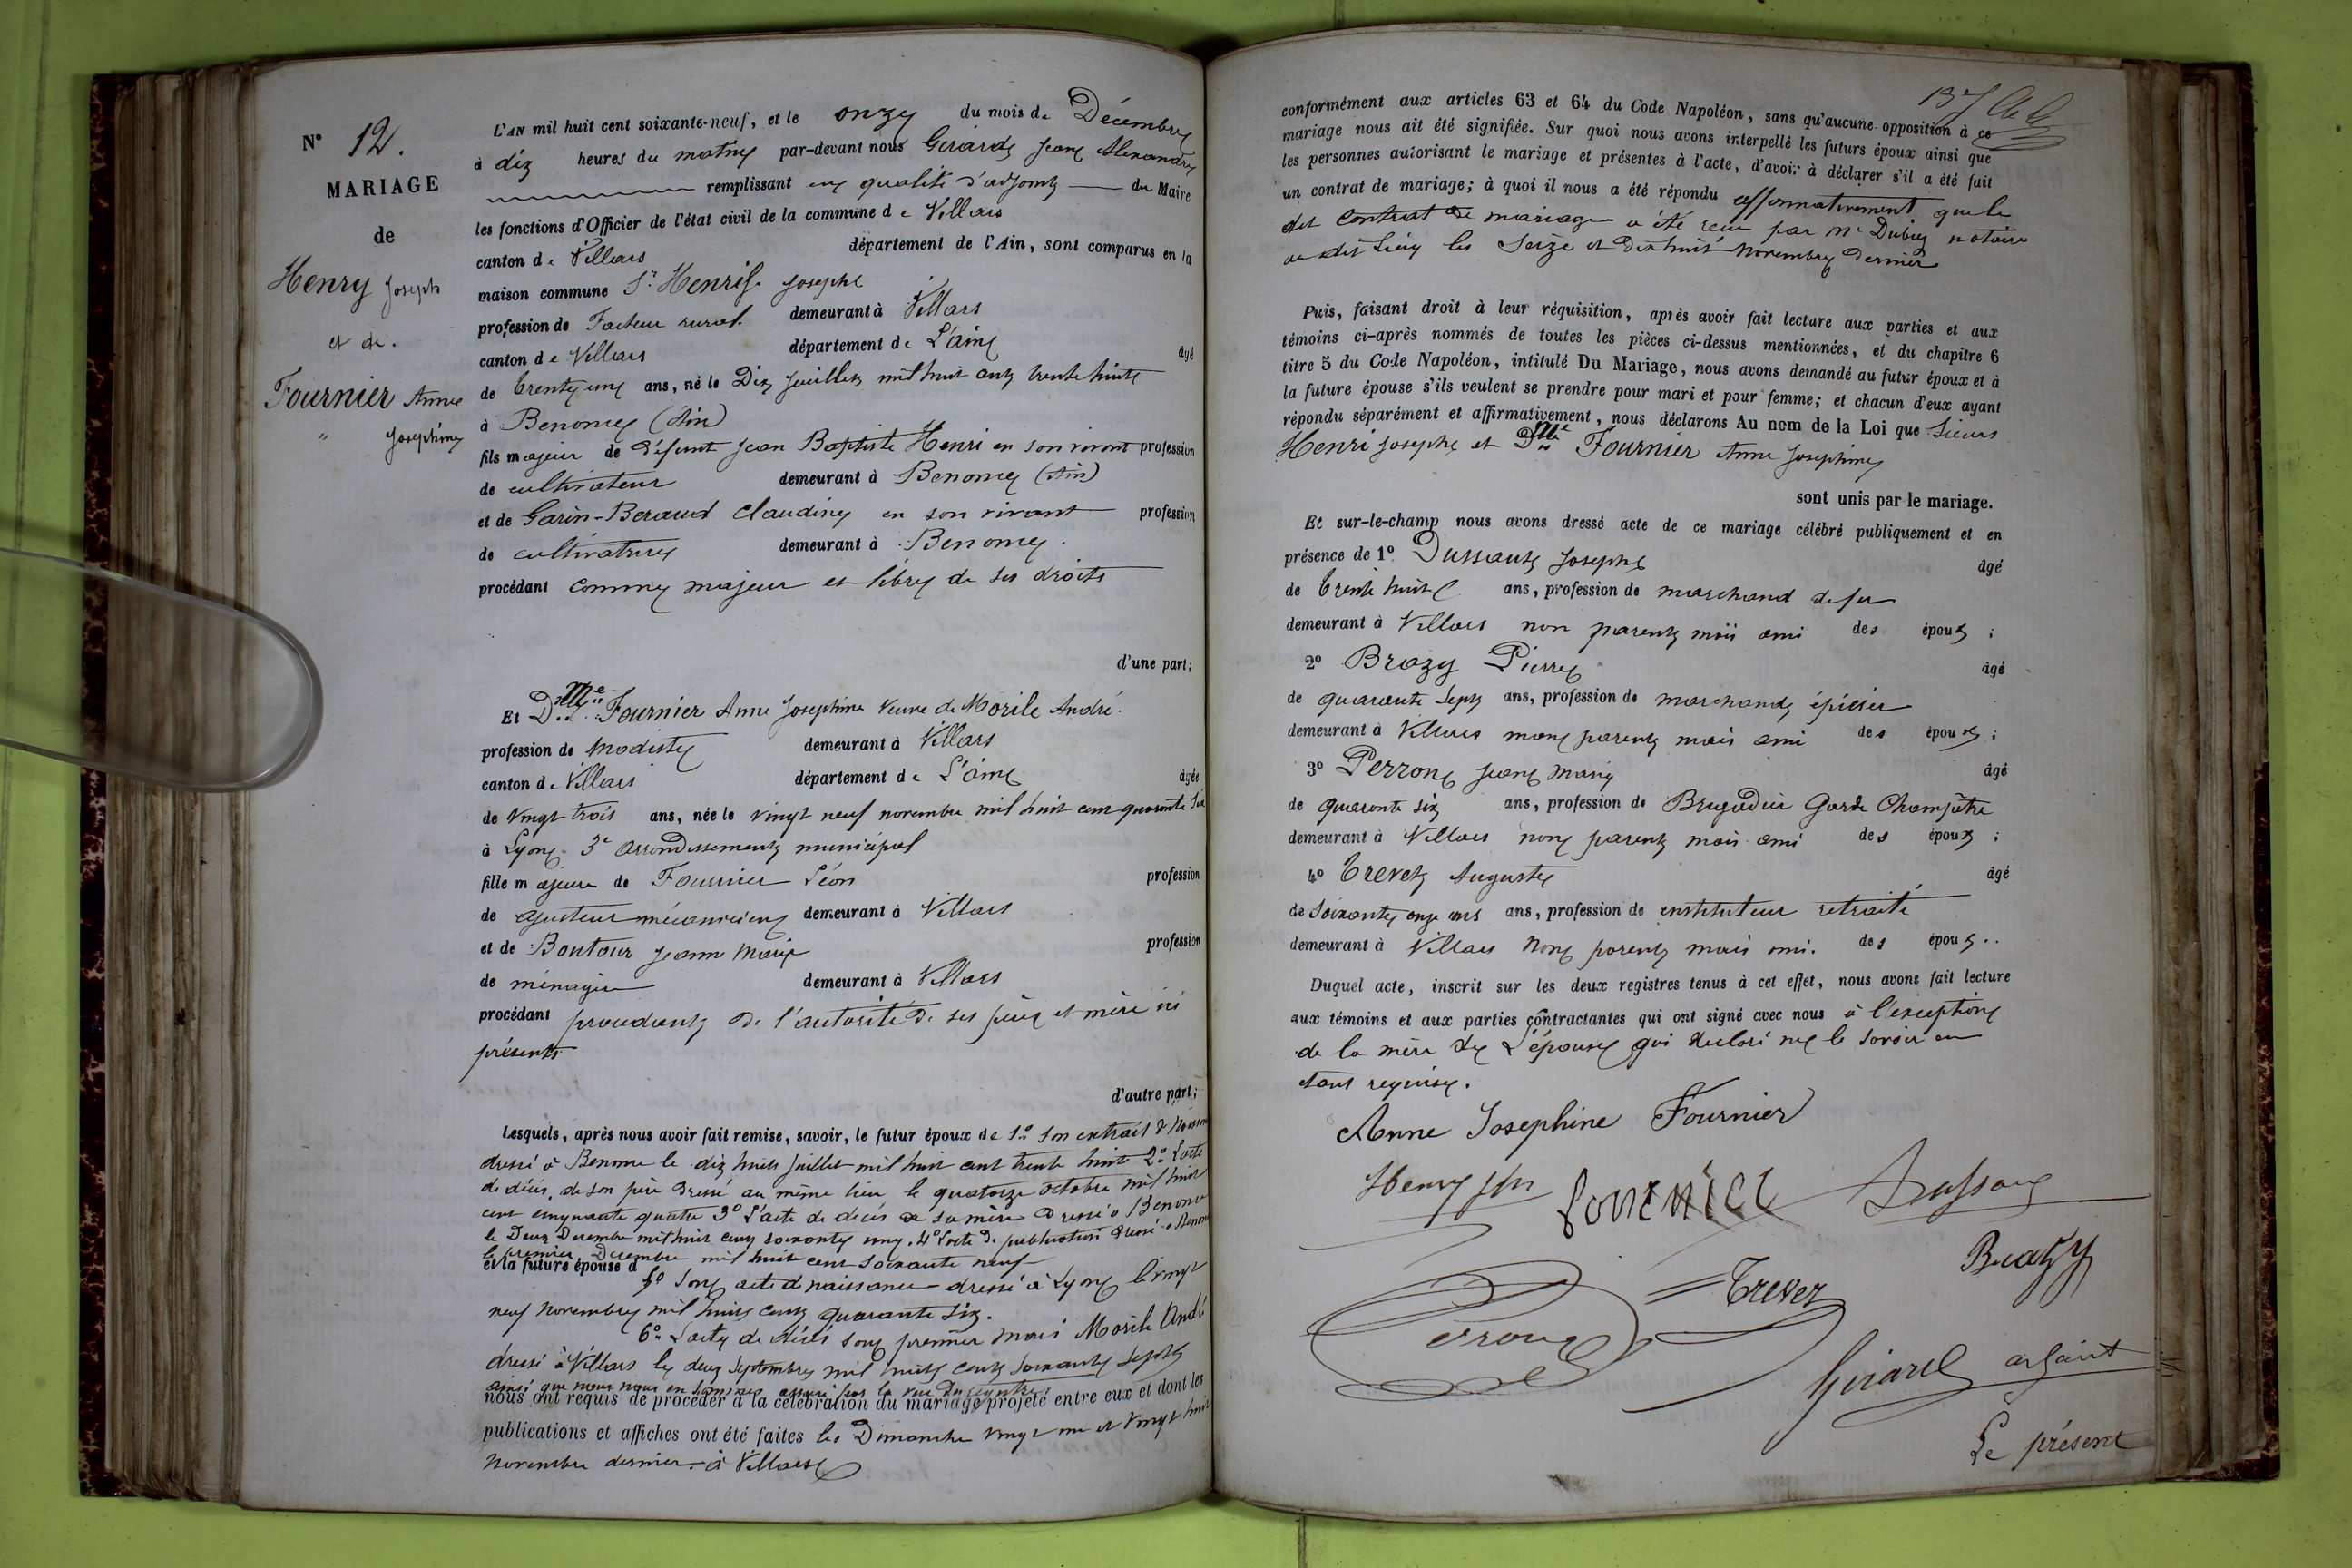 N° 12.
MARIAGE
de
Henry Joseph
et de.
Fournier Anne
" Josephine
L'AN mil huit cent soixante-neuf, et le onze du mois de Décembre
à dix heures du matin par-devant nous Girard Jean Alexandre
remplissant en qualité d'adjoint du Maire
les fonctions d'Officier de l'état civil de la commune de Villars
canton de Villars département de l'Ain, sont comparus en la
maison commune Sr Henri Joseph
profession de Facteur rural demeurant à Villars
canton de Villars département de L'ain âgé
de trente une ans, né le Dix Juillet mil huit cent trente huit
à Benome (Ain)
fils majeur de défunt Jean Baptiste Henri en son vivant profession
de cultivateur demeurant à Benome (Ain)
et de Garin-Beraud Claudine en son vivant profession
de cultivatrice demeurant à Benome.
procédant comme majeur et libre de ses droits
d'une part;
Et Dme Fournier Anne Josephine Veuve de Morile André.
profession de Modiste demeurant à Villars
canton de Villars département de L'ain âgée
de vingt trois ans, née le vingt neuf novembre mil huit cent quarante six
à Lyon 3e arrondissement municipal
fille majeure de Fournier Léon profession
de ajusteur mécanicien demeurant à Villars
et de Boutour Jeanne Marie profession
de ménagère demeurant à Villars
procédant procédant de l'autorité de ses père et mère ici
présents
d'autre part;
Lesquels, après nous avoir fait remise, savoir, le futur époux de 1° son extrait d
dressé à Benome le dix huit Juillet mil huit cent trente huit 2° L'acte
de décès de son père dressé au même lieu le quatorze octobre mil huit
cent cinquante quatre 3° L'acte de décès de sa mère dressé à Benome
le Deux Decembre mil huit cent soixante cinq. 4° L'acte de publication dressé à Benome
le premier Decembre mil huit cent soixante neuf
et la future épouse d
5° Son acte de naissance dressé à Lyon le vingt
neuf novembre mil huit cent quarante six.
6° L'acte de décès son premier mari Morile André
dressé à Villars le deux Septembre mil huit cent soixante sept
ainsi que nous nous en sommes assuré par la vue du registre
nous ont requis de procéder à la célébration du mariage projeté entre eux et dont les
publications et affiches ont été faites les Dimanche vingt un et vingt huit
Novembre dernier à Villars
137
conformément aux articles 63 et 64 du Code Napoléon, sans qu'aucune opposition à ce
mariage nous ait été signifiée. Sur quoi nous avons interpellé les futurs époux ainsi que
les personnes autorisant le mariage et présentes à l'acte, d'avoir à déclarer s'il a été fait
un contrat de mariage; à quoi il nous a été répondu affirmativement que le
dit contrat de mariage a été reçu par Me notaire
au dit lieu les Seize et dix huit Novembre dernier
Puis, faisant droit à leur réquisition, après avoir fait lecture aux parties et aux
témoins ci-après nommés de toutes les pièces ci-dessus mentionnées, et du chapitre 6
titre 5 du Code Napoléon, intitulé Du Mariage, nous avons demandé au futur époux et à
la future épouse s'ils veulent se prendre pour mari et pour femme; et chacun d'eux ayant
répondu séparément et affirmativement, nous déclarons Au nom de la Loi que Sieurs
Henri Joseph et Dme Fournier Anne Josephine
sont unis par le mariage.
Et sur-le-champ nous avons dressé acte de ce mariage célébré publiquement et en
présence de 1° Dussaut Joseph âgé
de trente huit ans, profession de marchand de fer
demeurant à Villars non parent mais ami des époux;
2° Brazy Pierre âgé
de quarante sept ans, profession de marchand épicier
demeurant à Villars non parent mais ami des époux;
3° Perron Jean Marie âgé
de quarante six ans, profession de Brigadier Garde Champêtre
demeurant à Villars non parent mais ami des époux;
4° Trevet Auguste âgé
de soixante onze ans ans, profession de instituteur retraité
demeurant à Villars non parent mais ami. des époux..
Duquel acte, inscrit sur les deux registres tenus à cet effet, nous avons fait lecture
aux témoins et aux parties contractantes qui ont signé avec nous à l'exception
de la mère de L'épouse qui déclaré ne le savoir en
étant requise.
Anne Josephine Fournier
Henry Jph
fournier
Dussaug
Brazy
Trever
Perroug
Girard adjoint
Le présent